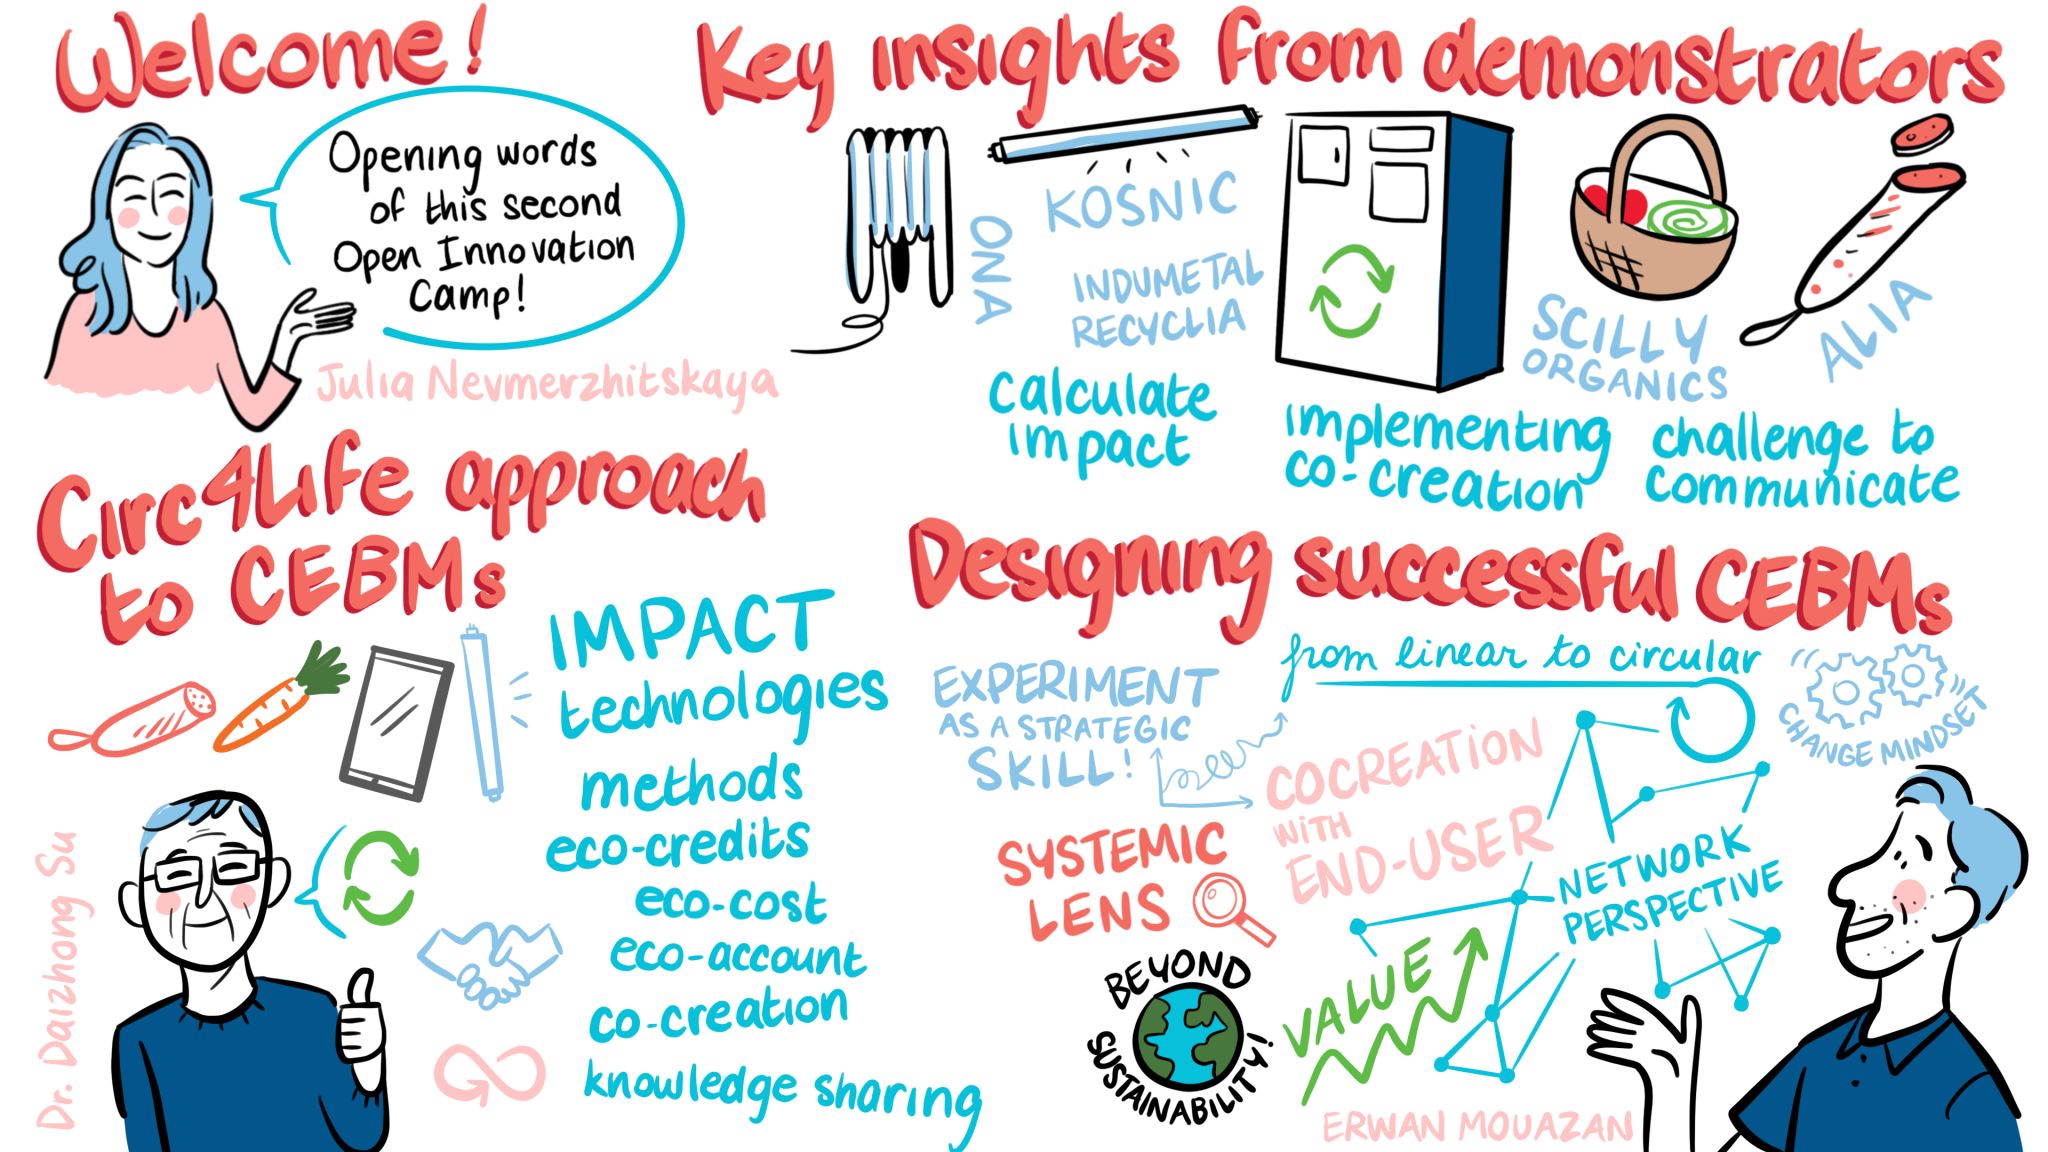 Welcome!
Opening words
of this second
Open Innovation
Camp!
Julia Nevmerzhitskaya
Key insights from demonstrators
ONA
KOSNIC
INDUMETAL
RECYCLIA
SCILLY
ORGANICS
ALIA
Calculate
impact
implementing
co-creation
challenge to
communicate
Circ4Life approach
to CEBMs
IMPACT
technologies
methods
eco-credits
eco-cost
eco-account
co-creation
knowledge sharing
Dr. Daizhong Su
Designing successful CEBMs
from linear to circular
EXPERIMENT
AS A STRATEGIC
SKILL!
CHANGE MINDSET
COCREATION
WITH
END-USER
SYSTEMIC
LENS
NETWORK
PERSPECTIVE
VALUE
BEYOND
SUSTAINABILITY!
ERWAN MOUAZAN